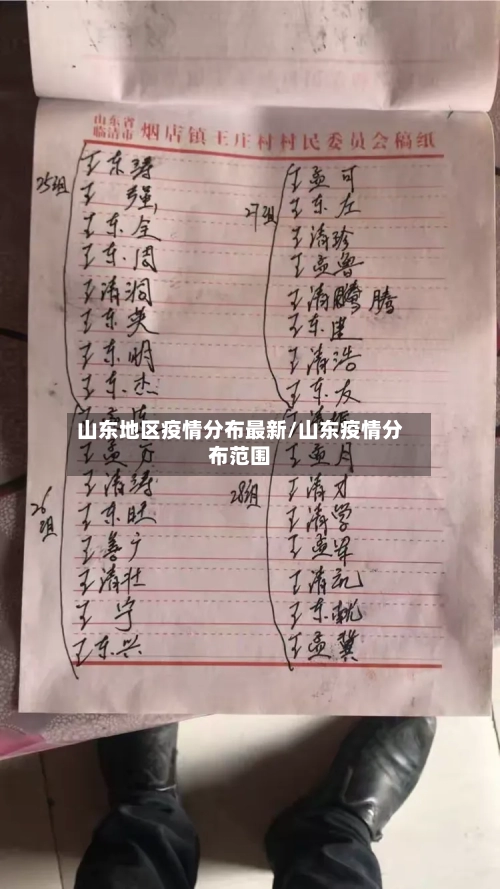 山东省
临清市 烟店镇王庄村村民委员会稿纸
25组
王东涛
王 强
王东全
王东周
王清润
王东英
王东明
王东杰
26组
王清涛
王东旺
王善广
王清壮
王 宁
王东兴
27组
王孟可
王东左
王清珍
王孟鲁
王清腾 腾
王东建
王清浩
王东友
山东地区疫情分布最新/山东疫情分
布范围
28组
王孟月
王清才
王清学
王孟军
王清记
王东航
王孟冀